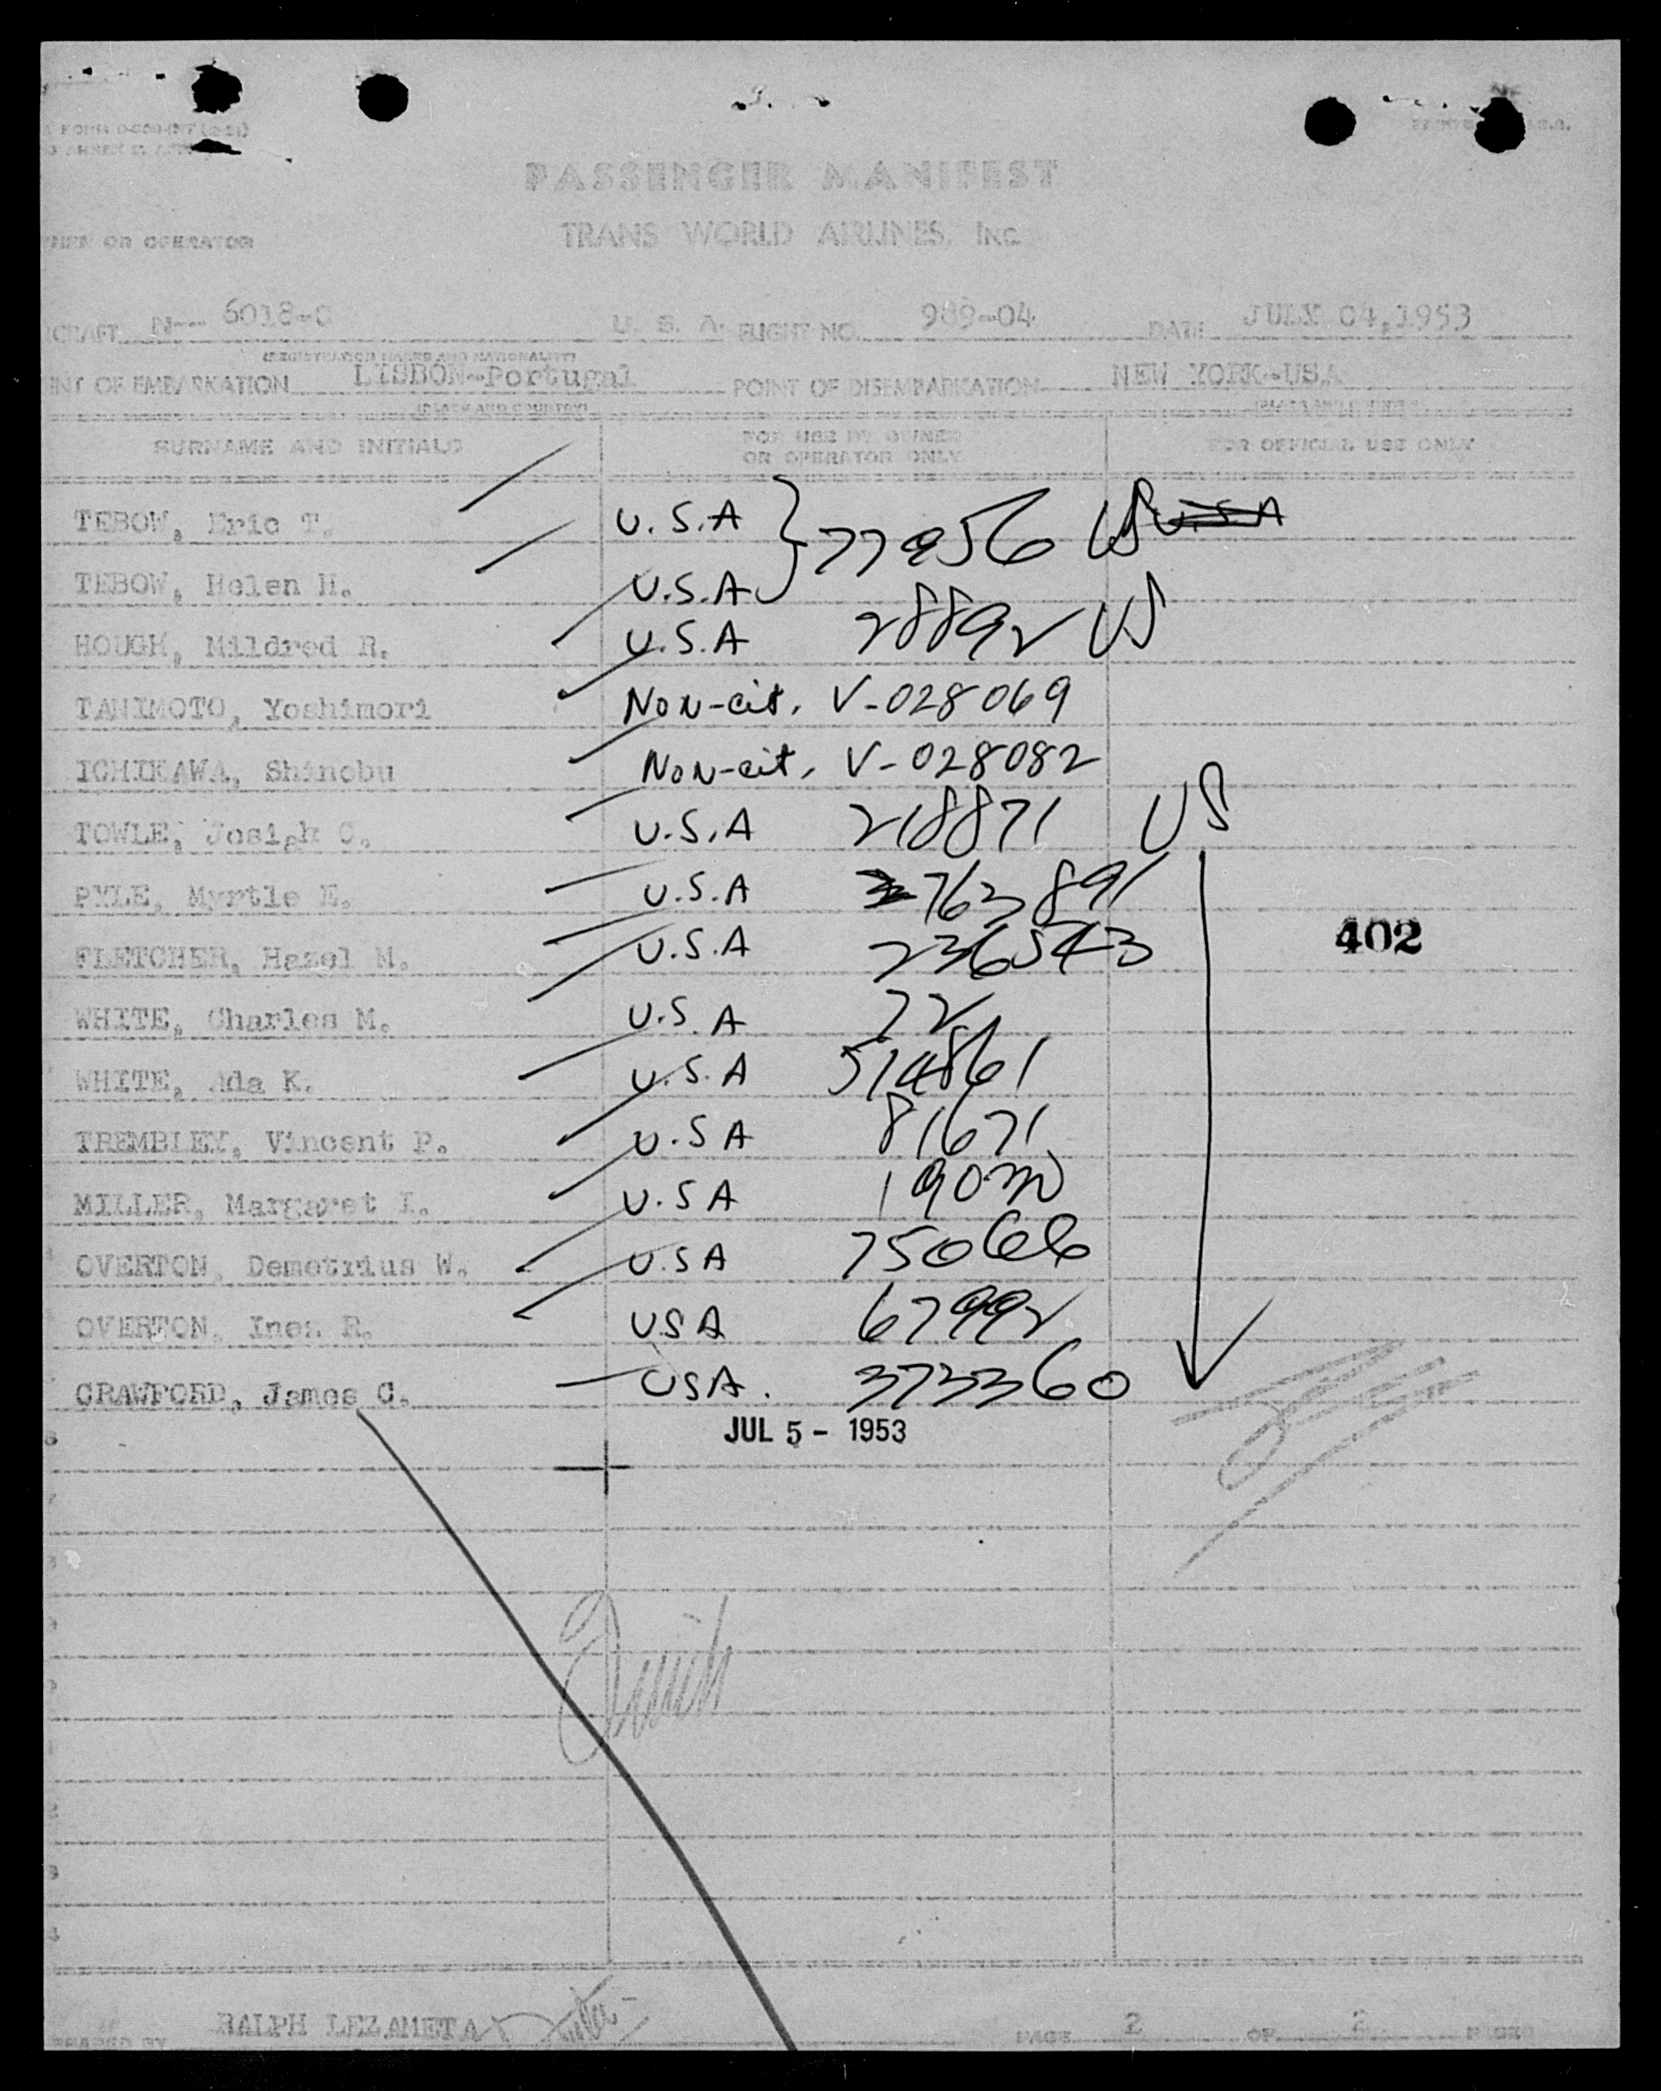 PASSENGER MANIFEST
TRANS WORLD AIRLINES, INC.
OR OPERATOR
N-- 6018-C U. S. A. FLIGHT NO. 989-04 DATE JULY 04,1953
(REGISTRATION MARKS AND NATIONALITY)
OF EMBARKATION LISBON-Portugal POINT OF DISEMBARKATION NEW YORK-USA
(PLACE AND COUNTRY)
SURNAME AND INITIALS FOR USE BY OWNER OR OPERATOR ONLY FOR OFFICIAL USE ONLY
TEBOW, Eric T. U.S.A } 77956 US U.S.A
TEBOW, Helen H. U.S.A
HOUGH, Mildred R. U.S.A 28892 US
TANIMOTO, Yoshimori Non-cit. V-028069
ICHIKAWA, Shinobu Non-cit. V-028082
TOWLE, Josiph C. U.S.A 218871 US
PYLE, Myrtle E. U.S.A 763891
FLETCHER, Hazel M. U.S.A 236543
402
WHITE, Charles M. U.S.A 72
WHITE, Ada K. U.S.A 514861
TREMBLEY, Vincent P. U.S.A 81671
MILLER, Margaret I. U.S.A
OVERTON, Demetrius W. U.S.A 75066
OVERTON, Inez R. USA 67992
CRAWFORD, James C. USA. 373360
JUL 5 - 1953
RALPH LEZAMETA PAGE 2 OF 2 PAGES